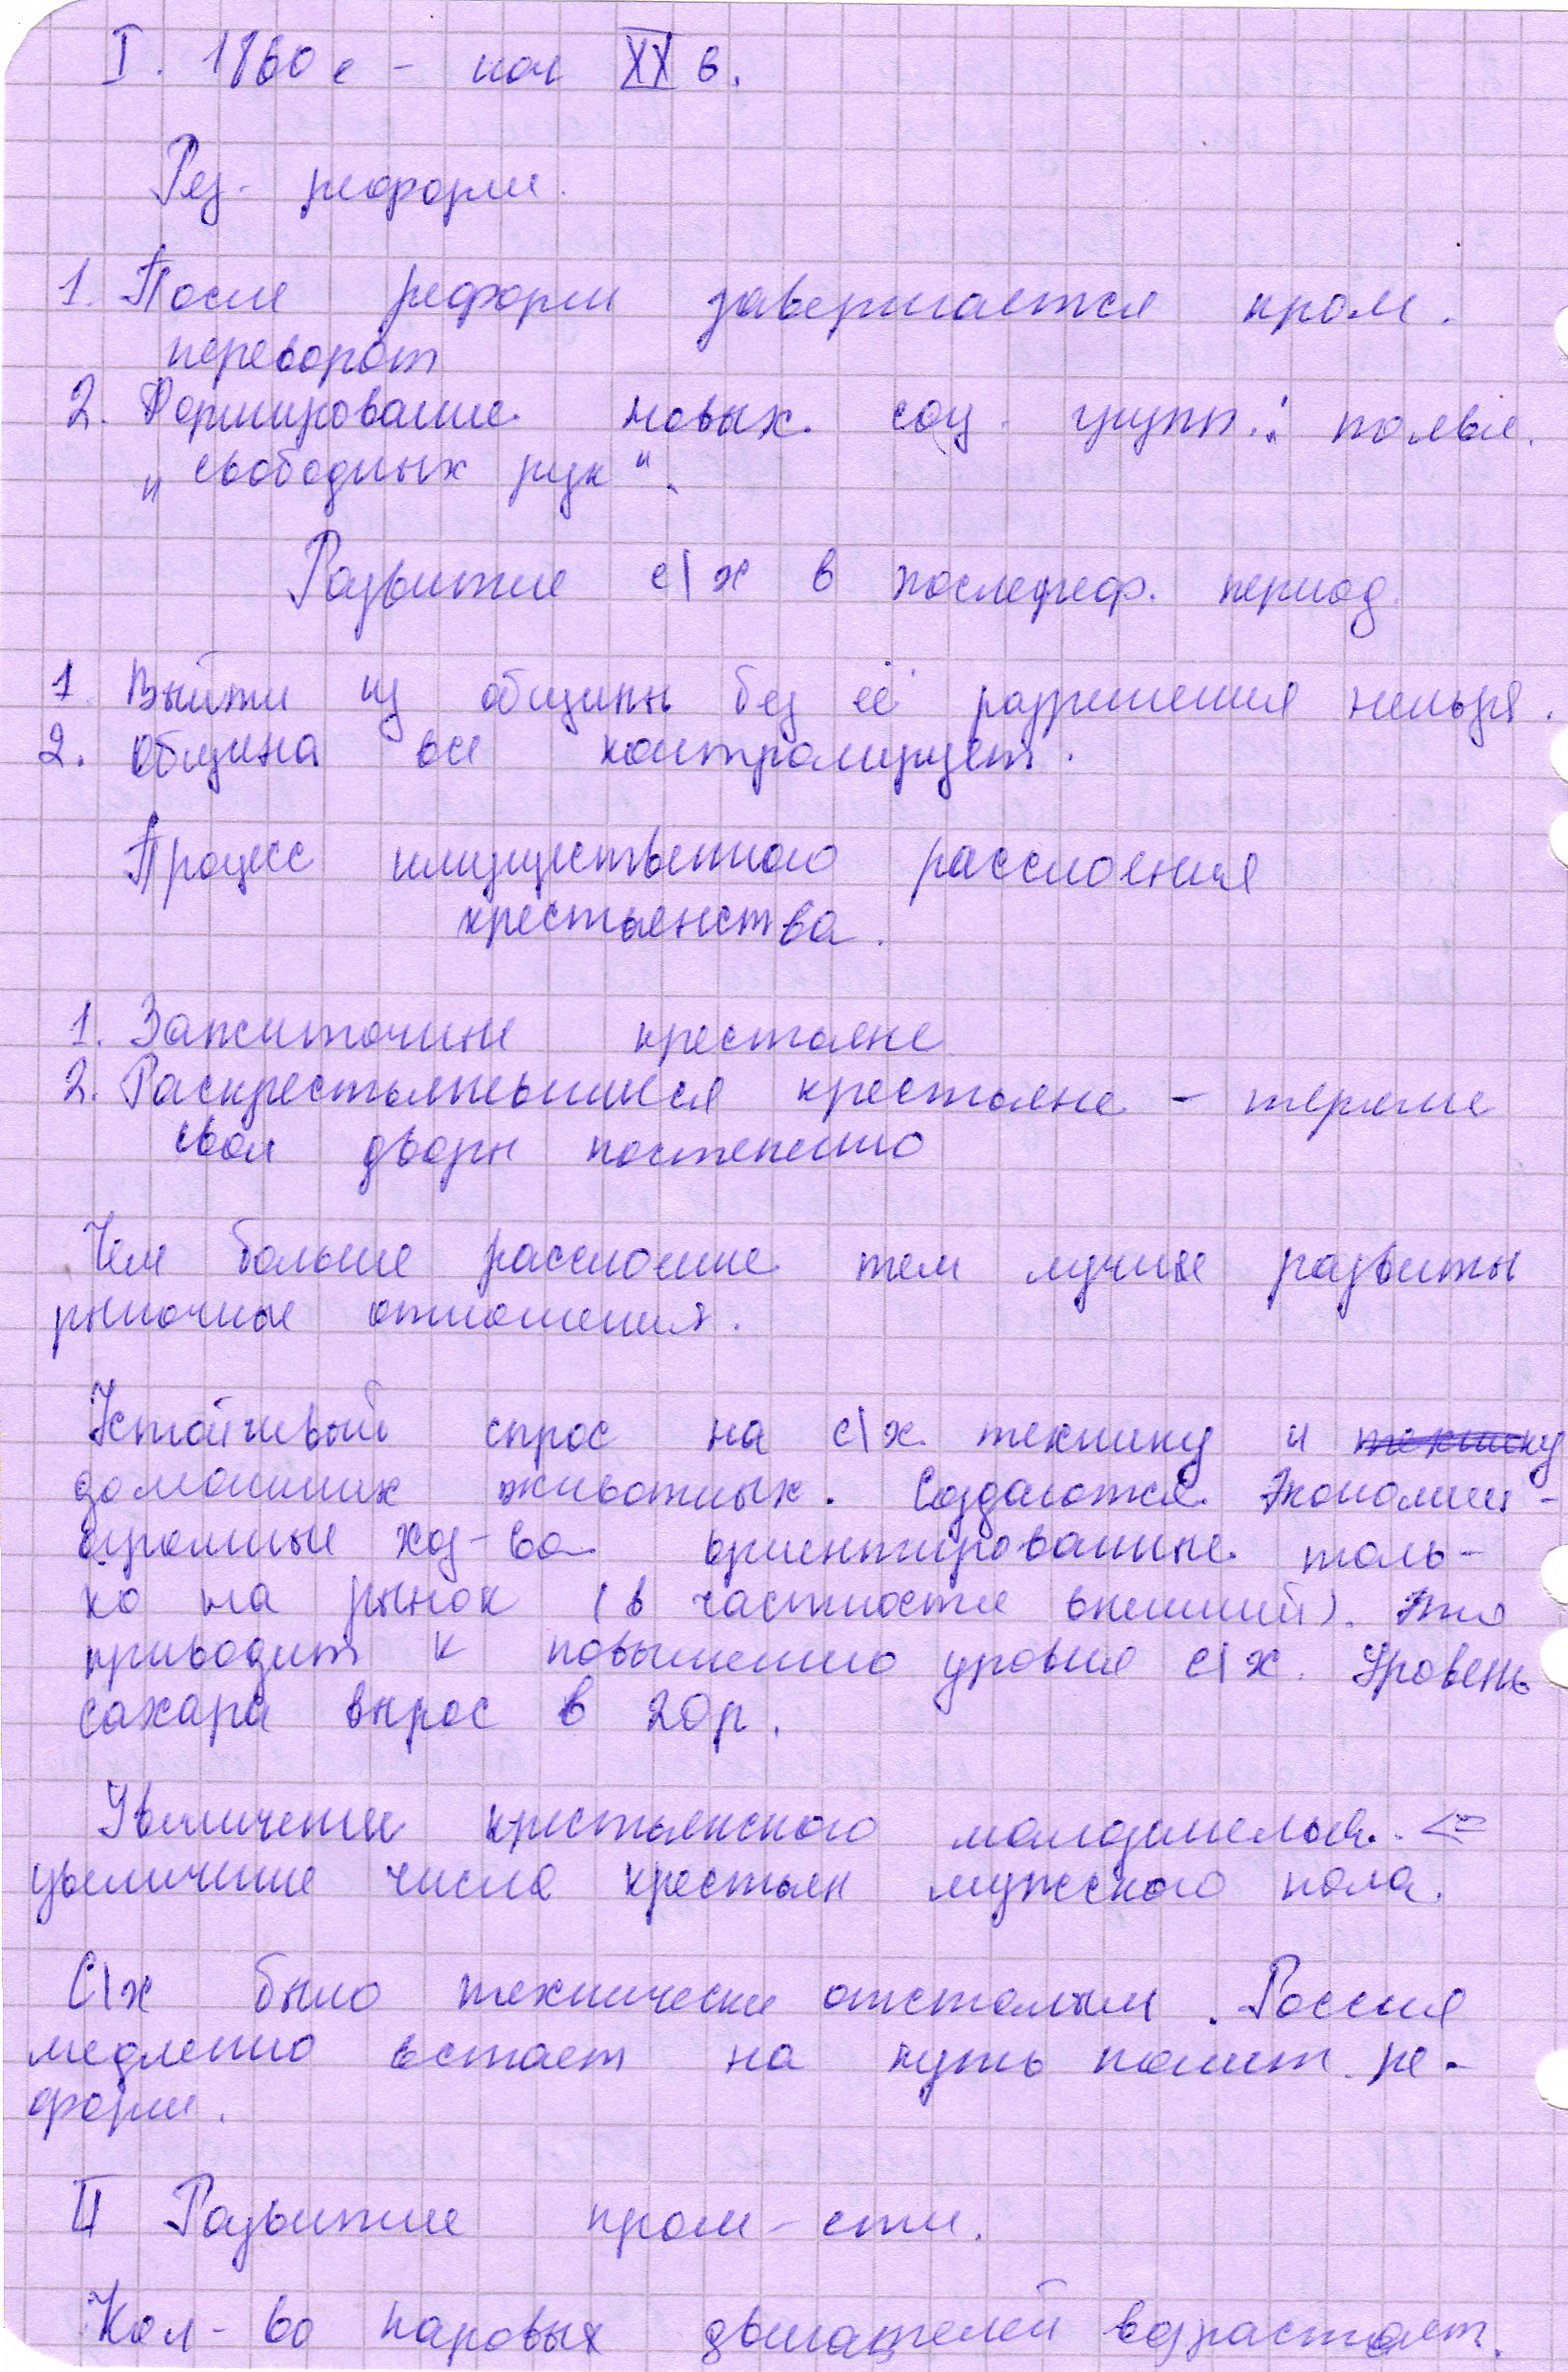 I. 1860е - нач XX в.
Рез. реформ.
1. После реформ завершается пром.
переворот
2. Формирование новых соц. групп: появл.
"свободных рук".
Развитие с/х в послереф. период.
1. Выйти из общины без её разрешения нельзя.
2. Община все контролирует.
Процесс имущественного расслоения
крестьянства.
1. Зажиточные крестьяне
2. Раскрестьянившиеся крестьяне - теряли
свои дворы постепенно
Чем больше расслоение тем лучше развиты
рыночные отношения.
Устойчивый спрос на с/х технику и технику
домашних животных. Создаются Экономии -
огромные хоз-ва ориентированные толь-
ко на рынок (в частности внешний). Это
приводит к повышению уровня с/х. Уровень
сахара вырос в 20р.
Увеличение крестьянского малоземелья. <=
увеличение числа крестьян мужского пола.
С/х было технически отсталым. Россия
медленно встает на путь полит. ре-
форм.
II Развитие пром-сти.
Кол-во паровых двигателей возрастает.